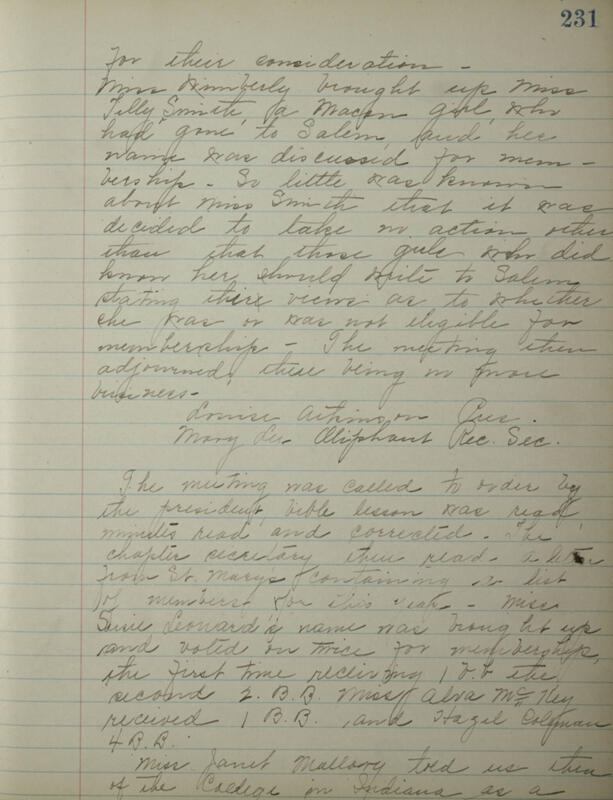 231
for their consideration -
Miss Wimberly brought up Miss
Tilly Smith, a Macon girl, who
had gone to Salem, and her
name was discussed for mem-
bership - So little was known
about Miss Smith that it was
decided to take no action other
than that those girls who did
know her should write to Salem
stating their views as to whether
she was or was not eligible for
membership - The meeting then
adjourned, there being no more
business -
Louise Atkinson Pres.
Mary Lee Oliphant Rec. Sec.
The meeting was called to order by
the president, bible lesson was read,
minutes read and corrected. The
chapter secretary then read a letter
from St. Marys containing a list
of members for this year - Miss
Susie Leonard's name was brought up
and voted on twice for membership,
the first time receiving 1 b.b the
second 2. B.B. Miss Alva McKey
received 1 B.B. and Hazel Coleman
4 B.B.
Miss Janet Mallory told us then
of the College in Indiana as a